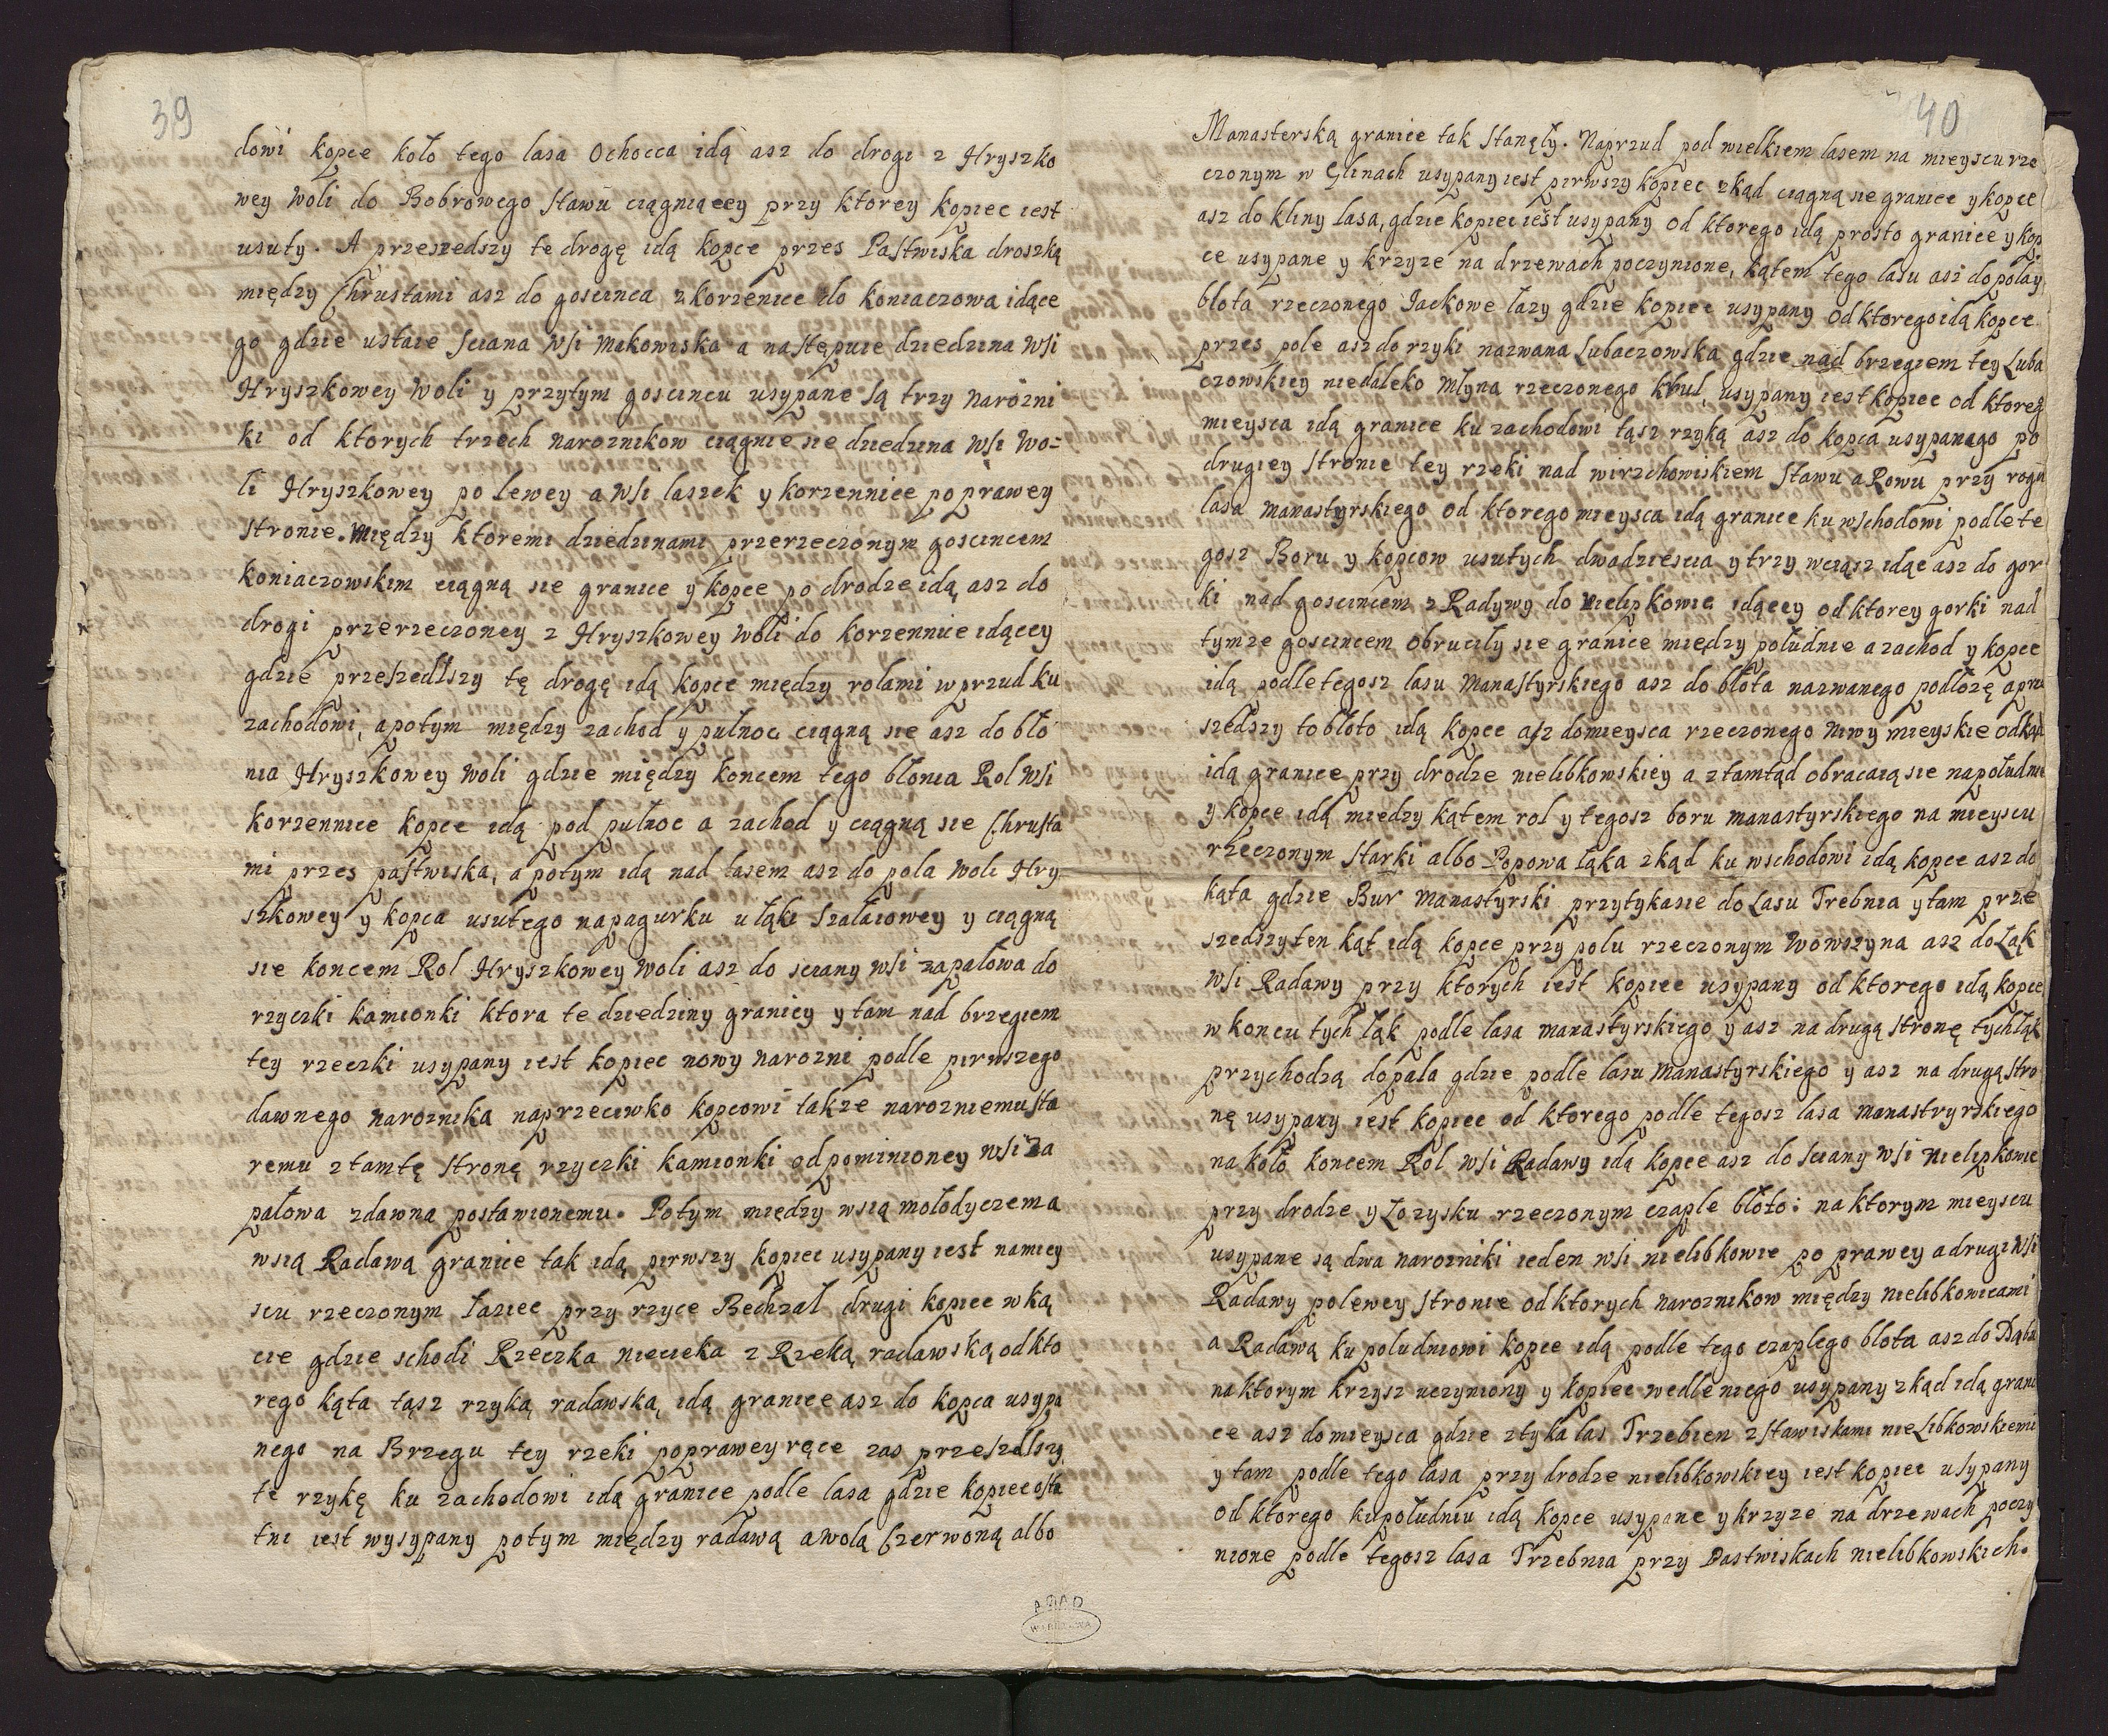 39
dowi kopce koło tego lasa Ochocca idą asz do drogi z Hryszko
wey woli do Bobrowego stawu ciągniącey przy ktorey kopiec iest
usuty. A przeszedszy te drogę idą kopce przes Pastwiska droszką
między Chrustami asz do goscinca z korzenice do koniaczowa idące
go gdzie ustaie sciana wsi Makowiska a następuie dziedzina wsi
Hryszkowey woli y przytym goscincu usypane są trzy narozni
ki od ktorych trzech naroznikow ciągnie sie dziedzina wsi wo=
li Hryszkowey po lewey a wsi laszek y korzennice po prawey
stronie. Między ktoremi dziedzinami przerzeczonym goscincem
koniaczowskim ciągną sie granice y kopce po drodze idą asz do
drogi przerzeczoney z Hryszkowey woli do korzennice idącey
gdzie przeszedszy tę drogę idą kopce między rolami w przud ku
zachodowi, a potym między zachod y pułnoc ciągną sie asz do bło
nia Hryszkowey woli gdzie między koncem tego błonia Rol wsi
korzennice kopce idą pod pułnoc a zachod y ciągną sie Chrusta
mi przes pastwiska, a potym idą nad lasem asz do pola woli Hry
szkowey y kopca usutego na pagurku u łąki Szałaiowey y ciągną
sie koncem Rol Hryszkowey woli asz do sciany wsi zapałowa do
rzyczki kamionki ktora te dziedziny graniczy y tam nad brzegiem
tey rzeczki usypany iest kopiec nowy narozni podle pirwszego
dawnego naroznika naprzeciwko kopcowi takze narozniemu sta
remu z tamtę stronę rzyczki kamionki odpominioney wsi Za
pałowa zdawna postawionemu. Potym między wsią mołodyczem a
wsią Radawą granice tak idą pirwszy kopiec usypany iest na miey
scu rzeczonym łaziec przy rzyce Bechzał drugi kopiec w ką
cie gdzie schodi Rzeczka niecieka z Rzeką radawską od kto
rego kąta tąsz rzyką radawską idą granice asz do kopca usypa
nego na Brzegu tey rzeki po prawey ręce zas przeszedszy
te rzykę ku zachodowi idą granice podle lasa gdzie kopiec osta
tni iest wysypany potym między radawą a wolą Czerwoną albo
40
Manasterską granice tak stanęły. Naprzud pod wielkiem lasem na mieyscu rze
czonym w Glinach usypany iest pirwszy kopiec zkąd ciągną sie granice y kopce
asz do kliny lasa, gdzie kopiec iest usypany od ktorego idą prosto granice y kop
ce usypane y krzyze na drzewach poczynione, kątem tego lasu asz do polay
błota rzeczonego Jackowe łazy gdzie kopiec usypany od ktorego idą kopce
przes pole asz do rzyki nazwana Lubaczowska gdzie nad brzegiem tey Luba
czowskiey niedaleko młyna rzeczonego kbul, usypany iest kopiec od ktoreg
mieysca idą granice ku zachodowi tąsz rzyką asz do kopca usypanego po
drugiey stronie tey rzeki nad wirzchowiskiem stawu a Rowu przy rogu
lasa manastyrskiego od ktorego mieysca idą granice ku wschodowi podle te
gosz Boru y kopcow usutych dwadziescia y trzy wciąsz idąc asz do gor
ki nad goscincem z Radywy do nielipkowic idącey od ktorey gorki nad
tymze goscincem obruciły sie granice między południe a zachod y kopce
idą podle tegosz lasu Manastyrskiego asz do błota nazwanego podłozę a prze
szedszy to błoto idą kopce asz do mieysca rzeczonego niwy mieyskie odkąd
idą granice przy drodze nielibkowskiey a ztamtąd obracaią sie na południe
y kopce idą miedzy kątem rol y tegosz boru manastyrskiego na mieyscu
rzeczonym Starki albo Popowa łąka zkąd ku wschodowi idą kopce asz do
kąta gdzie Bur Manastyrski przytyka sie do Lasu Trebnia y tam prze
szedszy ten kąt idą kopce przy polu rzeczonym wowszyna asz do Łąk
wsi Radawy przy ktorych iest kopiec usypany od ktorego idą kopce
w koncu tych łąk podle lasa manastyrskiego y asz na drugą stronę tych łąk
przychodzą do pala gdzie podle lasu Manastyrskiego y asz na drugą stro
nę usypany iest kopiec od ktorego podle tegosz lasa Manastryrskiego
na koło koncem Rol wsi Radawy idą kopce asz do sciany wsi nielipkowic
przy drodze y Łozysku rzeczonym czaple błoto: na ktorym mieyscu
usypane są dwa narozniki ieden wsi nielibkowic po prawey a drugi wsi
Radawy po lewey stronie od ktorych naroznikow między nielibkowicami
a Radawą ku poludniowi kopce idą podle tego czaplego blota asz do Dąba
na ktorym krzysz uczyniony y kopiec wedle niego usypany zkąd idą grani
ce asz do mieysca gdzie ztyka las Trzebien z stawiskami nielibkowskiemi
y tam podle tego lasa przy drodze nielibkowskiey iest kopiec usypany
od ktorego ku południu idą kopce usypane y krzyze na drzewach poczy
nione podle tegosz lasa Trzebnia przy Pastwiskach nielibkowskich.
AGAD
WARSZAWA